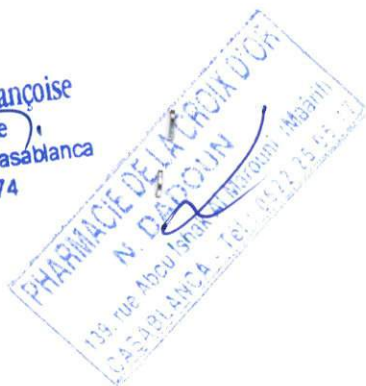 ançoise
e
asablanca
74
PHARMACIE DE LA CROIX D'OR
N. DADOUN
139, rue Abou Ishak Marouni (Maârif)
CASABLANCA - Tél : 0522 25